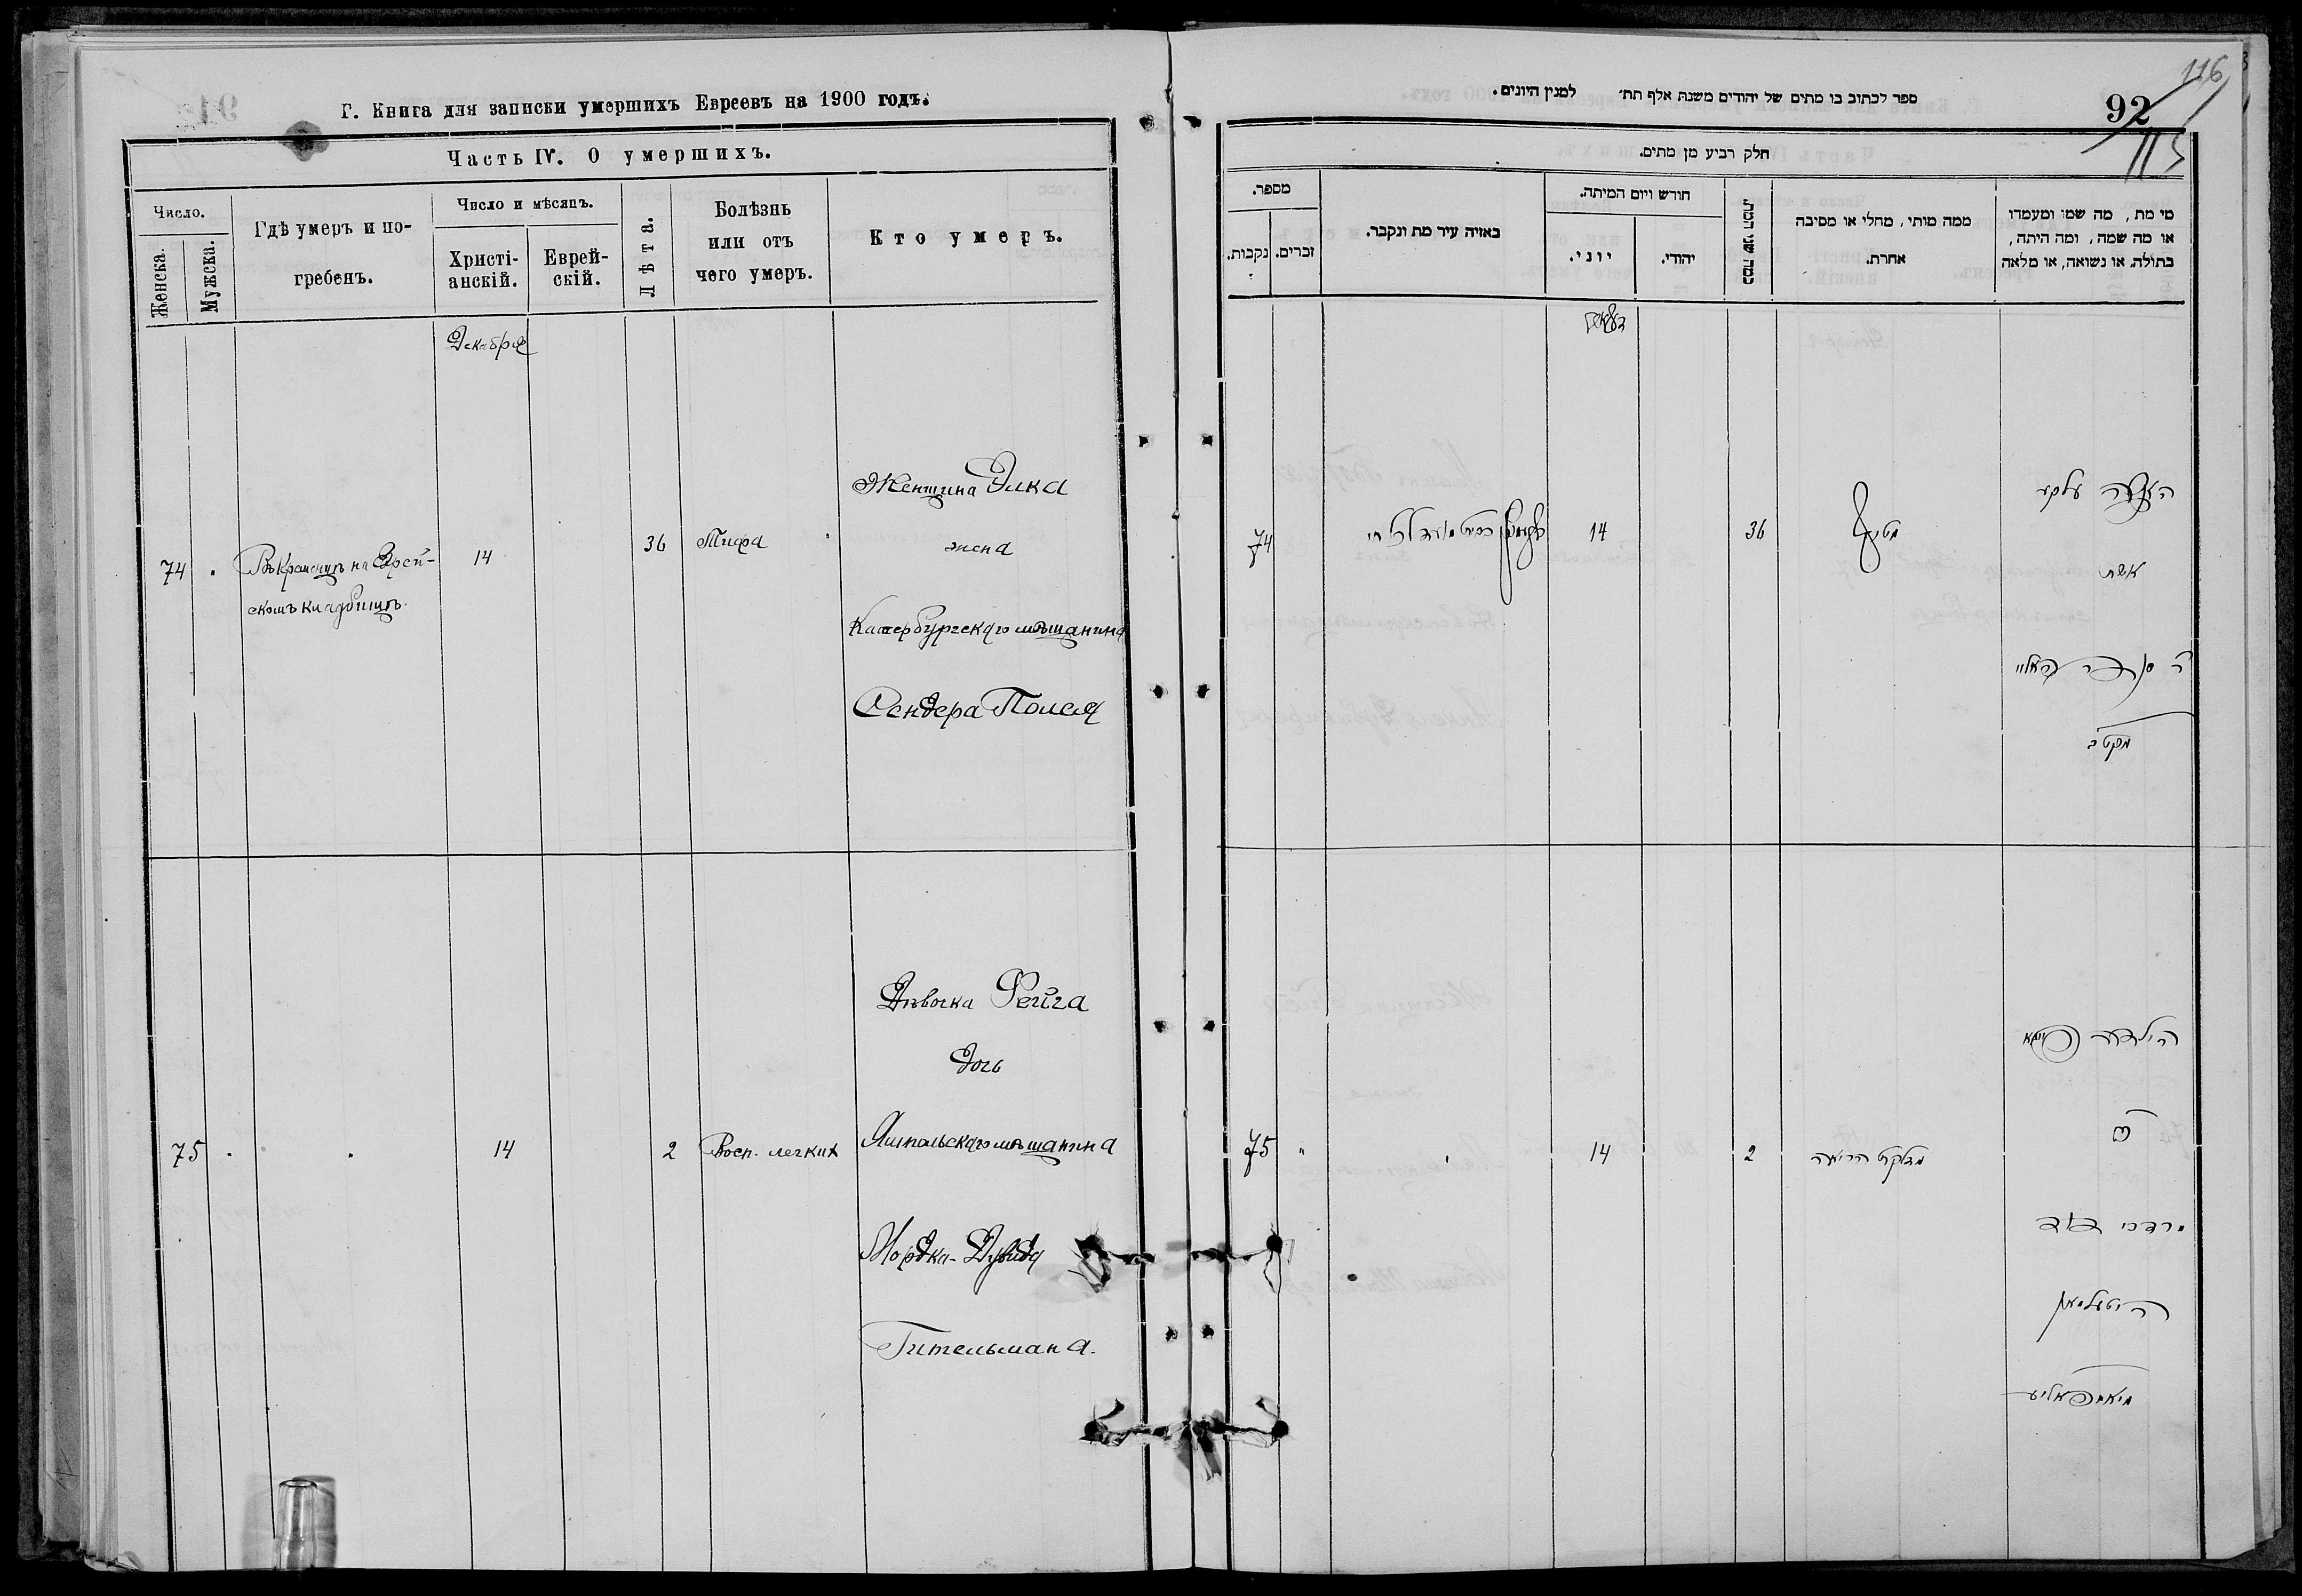 Г. Книга для записки умершихъ Евреевъ на 1900 годъ.
Часть IV. О умершихъ.
Число.
Женска.
Мужска.
Гдѣ умеръ и по-
гребенъ.
Число и мѣсяцъ.
Христі-
анскій.
Еврей-
скій.
Лѣта.
Болѣзнь
или отъ
чего умеръ.
Кто умеръ.
Декабря
74
Въ Кременцѣ на Еврей-
скомъ кладбищѣ.
14
36
Тифа
Женщина Элка
жена
Катербургскаго мѣщанина
Сендера Полея
75
14
2
Восп. легких
Дѣвочка Фейга
дочь
Ямпольскаго мѣщанина
Мордка-Дувида
Гительмана.
116
92
115
ספר לכתוב בו מתים של יהודים משנת אלף תת׳ למנין היונים.
חלק רביע מן מתים.
מספר.
נקבות.
זכרים.
באזיה עיר מת ונקבר.
חודש ויום המיתה.
יוני.
יהודי.
כמה שני המת.
ממה מותי, מחלי או מסיבה
אחרת.
מי מת, מה שמו ומעמדו
או מה שמה, ומה היתה,
בתולה, או נשואה, או מלאה
74
14
36
האשה עלקע
אשת
75
"
14
2
מדלקת הריאה
הילדה פייגא
מרדכי דוד
גיטעלמאן